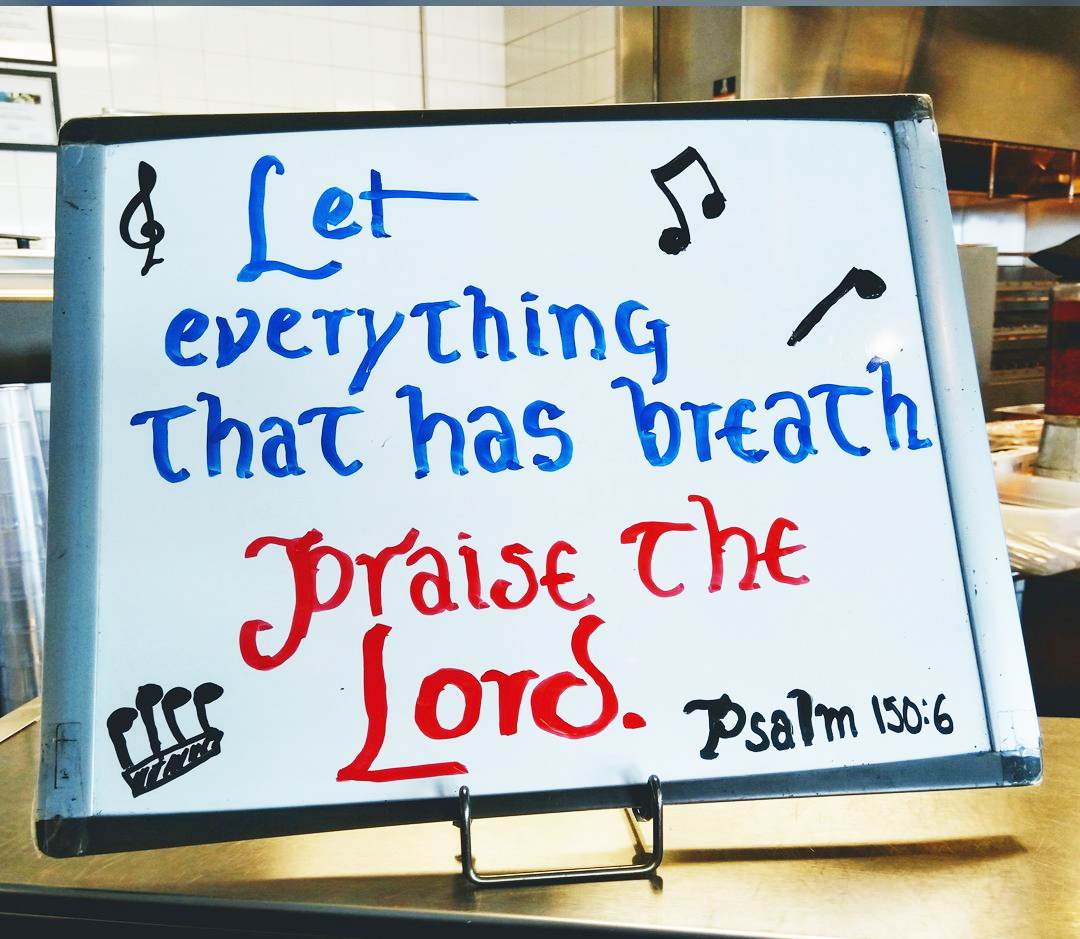 Let
everything
that has breath
praise the
Lord.
Psalm 150:6